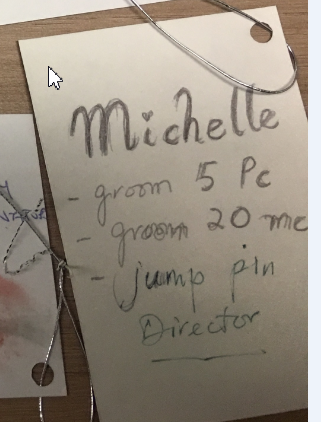 Michelle
- groom 5 Pc
- groom 20 mic
- jump pin
Director